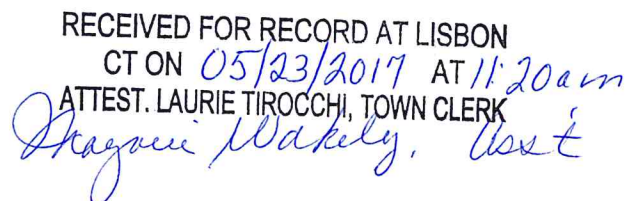 RECEIVED FOR RECORD AT LISBON
CT ON 05/23/2017 AT 11:20am
ATTEST. LAURIE TIROCCHI, TOWN CLERK
Marjorie Wakely, Asst